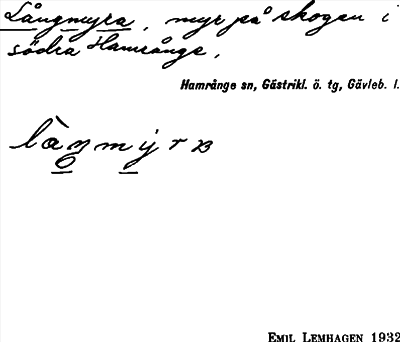 Långmyra, myr på skogen i
södra Hamrånge.
Hamrånge sn, Gästrikl. ö. tg, Gävleb. l.
EMIL LEMHAGEN 1932